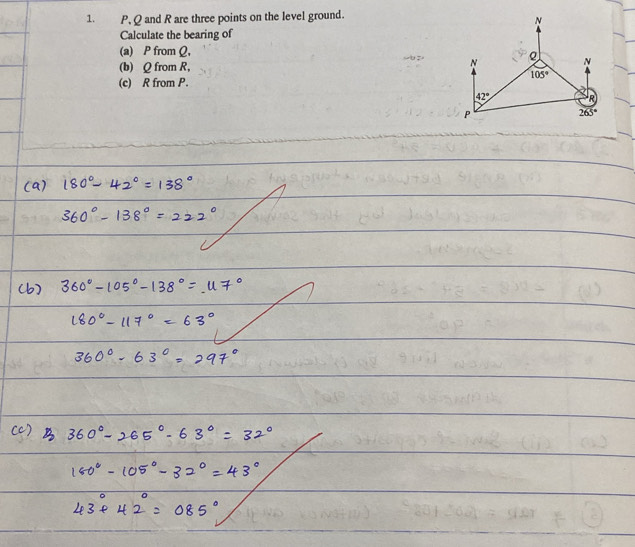 1. P, Q and R are three points on the level ground.
Calculate the bearing of
(a) P from Q,
(b) Q from R,
(c) R from P.
N
Q
105°
N
42°
P
N
R
265°
(a) 180° - 42° = 138°
360° - 138° = 222°
(b) 360° - 105° - 138° = 117°
180° - 117° = 63°
360° - 63° = 297°
(c) 360° - 265° - 63° = 32°
180° - 105° - 32° = 43°
43° + 42° = 085°